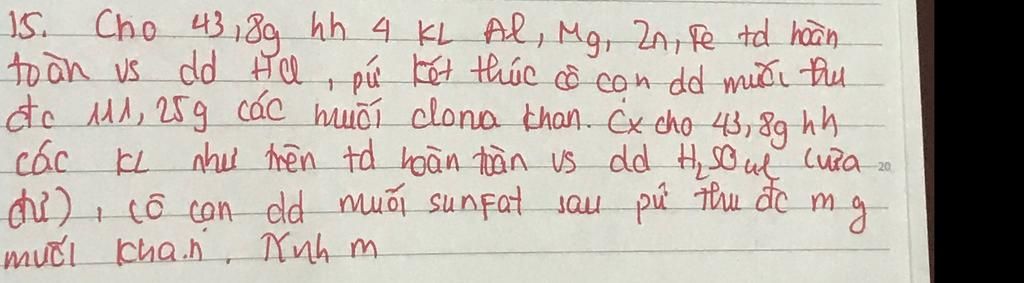 15. Cho 43,8g hh 4 KL Al, Mg, Zn, Fe td hoàn
toàn vs dd HCl, pứ kết thúc cô cạn dd muối thu
đc 111,25g các muối clorua khan. Cx cho 43,8g hh
các KL như trên td hoàn toàn vs dd H₂SO₄ l (vừa 20
đủ), cô cạn dd muối sunfat sau pứ thu đc m g
muối khan. Tính m